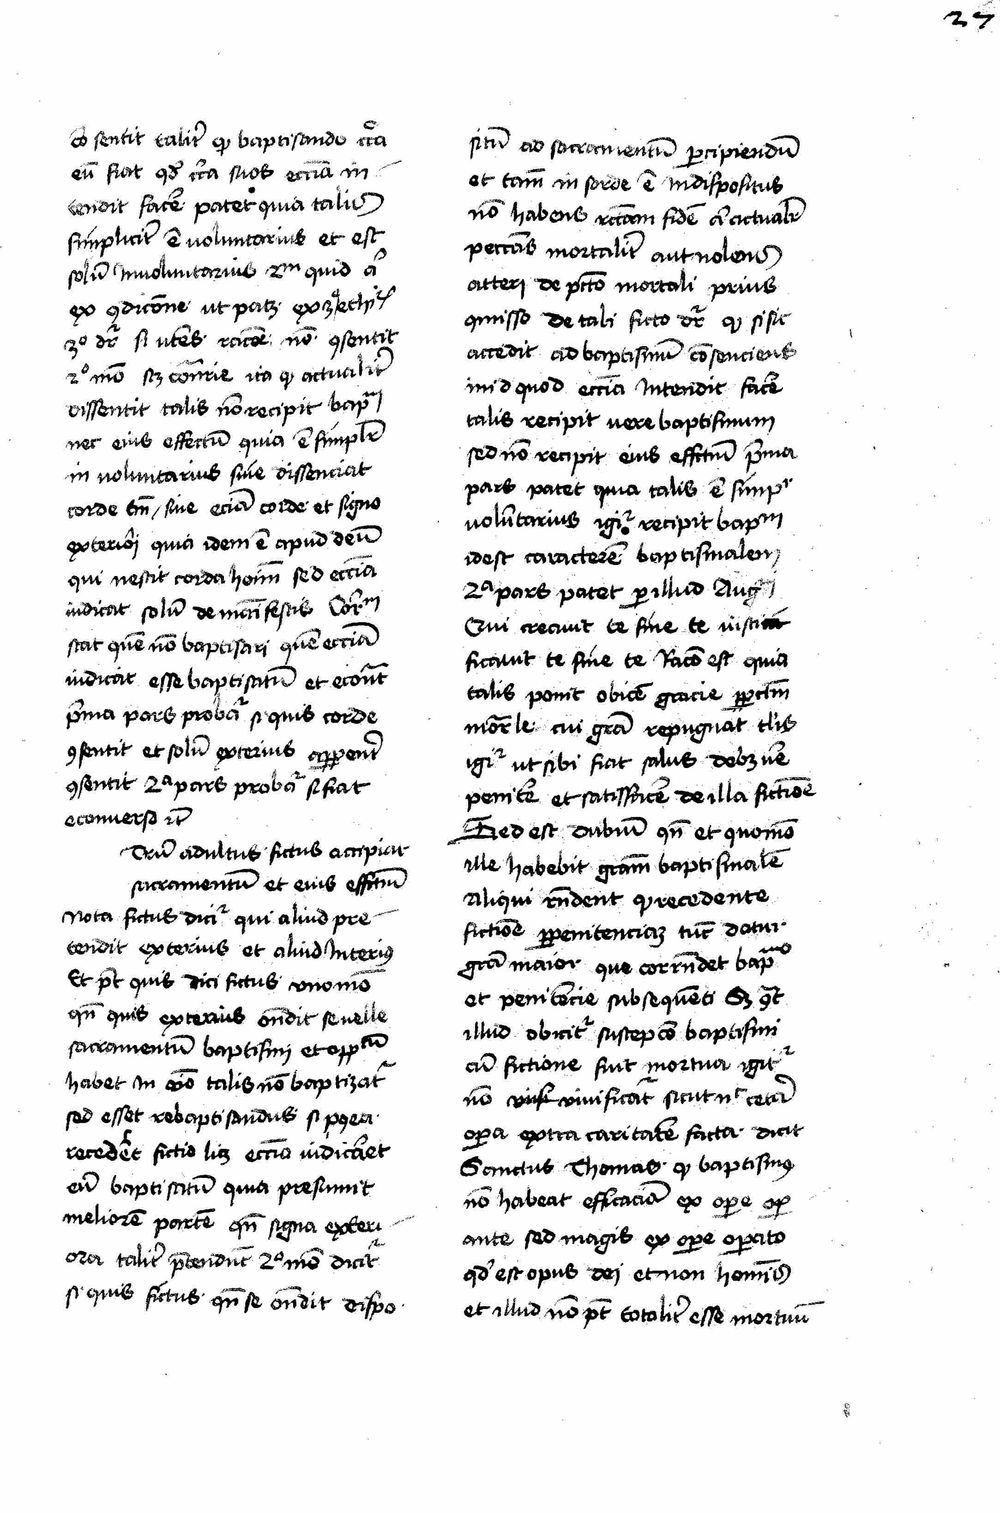 27
sentit talit̄ qꝫ baptisando cc̄a
eū fiat qd̄ cc̄a suos eccīa in
tendit facē patet quia talis
simplicit̄ ē voluntarius et est
solū Involuntarius 2m quid
ex 9dicōne ut patꝫ ex 3 ethi
3o dr̄ si utēs rācōē nō 9sentit
2o mō sꝫ cōn̄rie ita qꝫ actualit̄
dissentit talis nō recipit bap
nec eius effectū quia ē simplr̄
in voluntarius siue dissenciat
corde tm̄ / siue eciā corde et signo
exteriori quia idem ē apud deū
qui nescit corda hoīm sed eccīa
iudicat solū de mani festis
stat quē nō baptisari quē eccīa
iudicat esse baptisatū et econt̄
pͥma pars probat̄ si quis corde
9sentit et solū exterius
9sentit 2a pars probat̄ si fiat
econuerso
Utrū adultus fictus accipiat
sacramentū et eius effctum
Nota fictus dicit̄ qui aliud pre
tendit exterius et aliud Interiꝰ
Et pt̄ quis dici fictus vno mō
qn̄ quis exterius on̄dit se uelle
sacramentū baptismi et opp̄tum
habet In talis nō baptizat̄
sed esset rebaptisandus si postea
recederet fictio licꝫ eccīa iudicaret
eū baptisatū quia presumit
meliorē partē qn̄ signa exteri
ora talit̄ p̄tendunt 2o mō dicit̄
si quis fictus qn̄ se on̄dit dispo
situ ad sacramentū percipiendū
et tam̄ in sorde ē Indispositus
nō habens rectam fidē actualr̄
peccās mortalit̄ aut nolens
atteri de pctō mortali prius
9misso de tali ficto dr̄ qꝫ si sic
accedit ad baptismū cōsenciens
in id quod eccīa Intendit facē
talis recipit vere baptismum
sed nō recipit eius effctum pͥma
pars patet quia talis ē simpr
volūtarius igit̄ recipit bapm
idest caracterē baptismalem
2a pars patet per illud Aug
Qui creauit te sine te iusti
ficauit te sine te Racō est quia
talis ponit obicē gracie
mor̄le cui grā repugnat tl̄is
igit̄ ut sibi fiat salus debꝫ vē
penitē et satisfacē de illa fictiōe
Sed est dubiū qn̄ et quomō
ille habebit grām baptismalē
Aliqui rn̄dent qꝫ recedente
fictiōe per penitenciaꝫ tūc datur
grā maior que corrn̄det bapo
et penitēcie subsequēti Sꝫ 9t̄
illud obicit̄ suscepcō baptismi
cū fictione fuit mortua igit̄
nō vivificat̄ sicut nc cetā
opa extra caritatē facta dicit
Sanctus Thomas qꝫ baptismꝰ
nō habeat efficaciā ex ope op
ante sed magis ex ope operato
qd̄ est opus dei et non hominis
et illud nō pt̄ totalit̄ esse mortuū